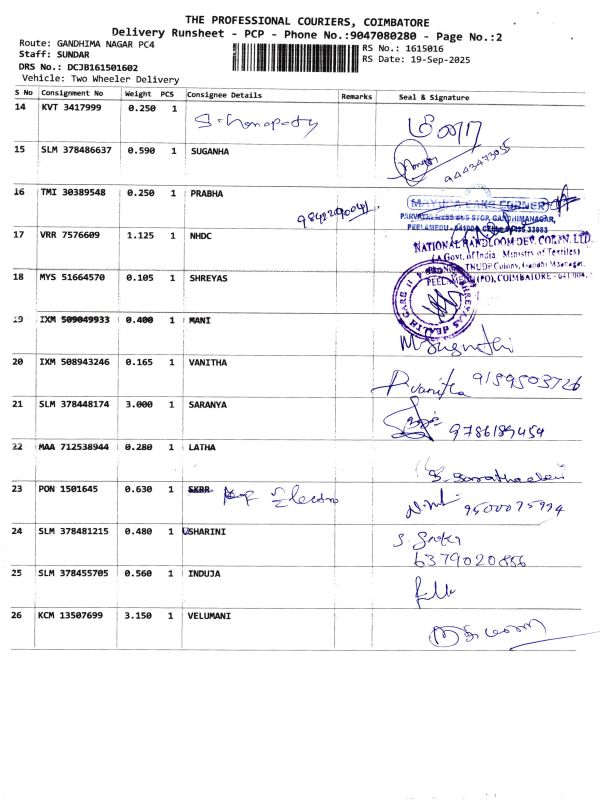 THE PROFESSIONAL COURIERS, COIMBATORE
Delivery Runsheet - PCP - Phone No.:9047080280 - Page No.:2
Route: GANDHIMA NAGAR PC4
Staff: SUNDAR
DRS No.: DCJB161501602
Vehicle: Two Wheeler Delivery
RS No.: 1615016
RS Date: 19-Sep-2025
S No Consignment No Weight PCS Consignee Details Remarks Seal & Signature
14 KVT 3417999 0.250 1
15 SLM 378486637 0.590 1 SUGANHA 9443473055
16 TMI 30389548 0.250 1 PRABHA
MAYURA CAKE CORNER
PARVATHI NESS BUS STOP, GANDHIMANAGAR,
17 VRR 7576609 1.125 1 NHDC
NATIONAL HANDLOOM DEV. CORPN. LTD.
(A Govt. of India Ministry of Textiles)
TNUDP Colony, Gandhi Maanagar,
PEELAMEDU (PO), COIMBATORE - 641 004.
18 MYS 51664570 0.105 1 SHREYAS
SHREYAS HEALTH CARE
19 IXM 509049933 0.400 1 MANI
20 IXM 508943246 0.165 1 VANITHA P.vanitha 9159503726
21 SLM 378448174 3.000 1 SARANYA 9786189454
22 MAA 712538944 0.280 1 LATHA
23 PON 1501645 0.630 1 SKRR 9500075994
24 SLM 378481215 0.480 1 USHARINI
6379020856
25 SLM 378455705 0.560 1 INDUJA
26 KCM 13507699 3.150 1 VELUMANI